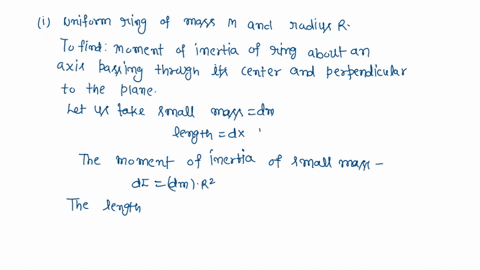 (i) Uniform ring of mass M and radius R.
To find: moment of inertia of ring about an
axis passing through its center and perpendicular
to the plane.
Let us take small mass = dm
length = dx
The moment of inertia of small mass -
dI = (dm).R²
The length